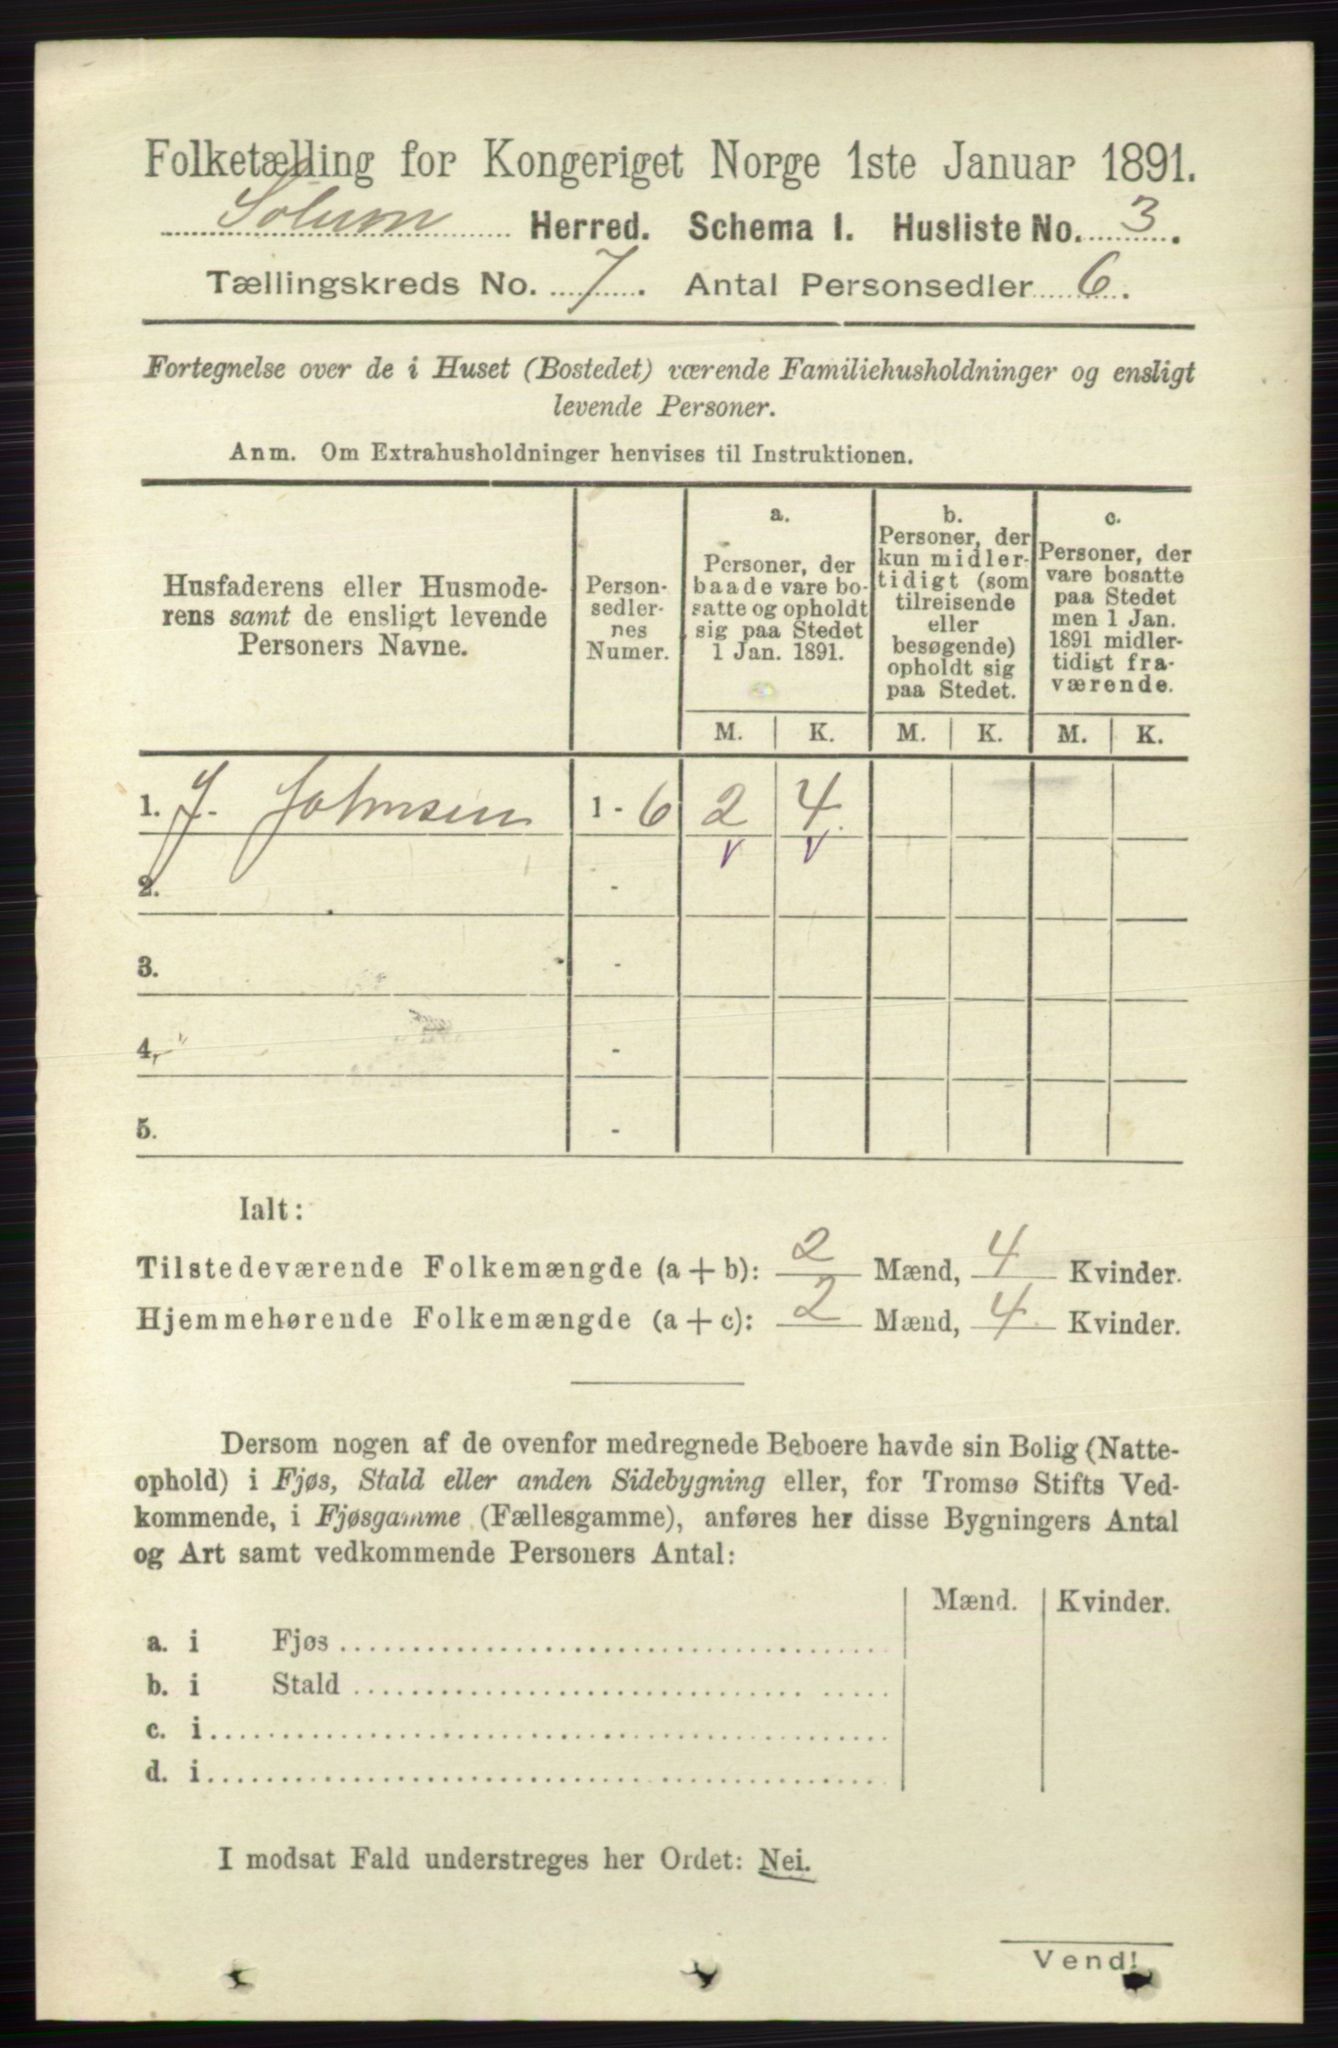 Folketælling for Kongeriget Norge 1ste Januar 1891.
Solum Herred. Schema 1. Husliste No. 3.
Tællingskreds No. 7. Antal Personsedler 6.
Fortegnelse over de i Huset (Bostedet) værende Familiehusholdninger og ensligt
levende Personer.
Anm. Om Extrahusholdninger henvises til Instruktionen.
Husfaderens eller Husmode-
rens samt de ensligt levende
Personers Navne.
Person-
sedler-
nes
Numer.
a.
Personer, der
baade vare bo-
satte og opholdt
sig paa Stedet
1 Jan. 1891.
b.
Personer, der
kun midler-
tidigt (som
tilreisende
eller
besøgende)
opholdt sig
paa Stedet.
c.
Personer, der
vare bosatte
paa Stedet
men 1 Jan.
1891 midler-
tidigt fra-
værende.
M. K. M. K. M. K.
1. J. Johnsen 1 - 6 2 4
v v
2. -
3. -
4. -
5. -
Ialt:
Tilstedeværende Folkemængde (a + b): 2 Mænd, 4 Kvinder.
Hjemmehørende Folkemængde (a + c): 2 Mænd, 4 Kvinder.
Dersom nogen af de ovenfor medregnede Beboere havde sin Bolig (Natte-
ophold) i Fjøs, Stald eller anden Sidebygning eller, for Tromsø Stifts Ved-
kommende, i Fjøsgamme (Fællesgamme), anføres her disse Bygningers Antal
og Art samt vedkommende Personers Antal:
Mænd. Kvinder.
a. i Fjøs
b. i Stald
c. i
d. i
I modsat Fald understreges her Ordet: Nei.
Vend!